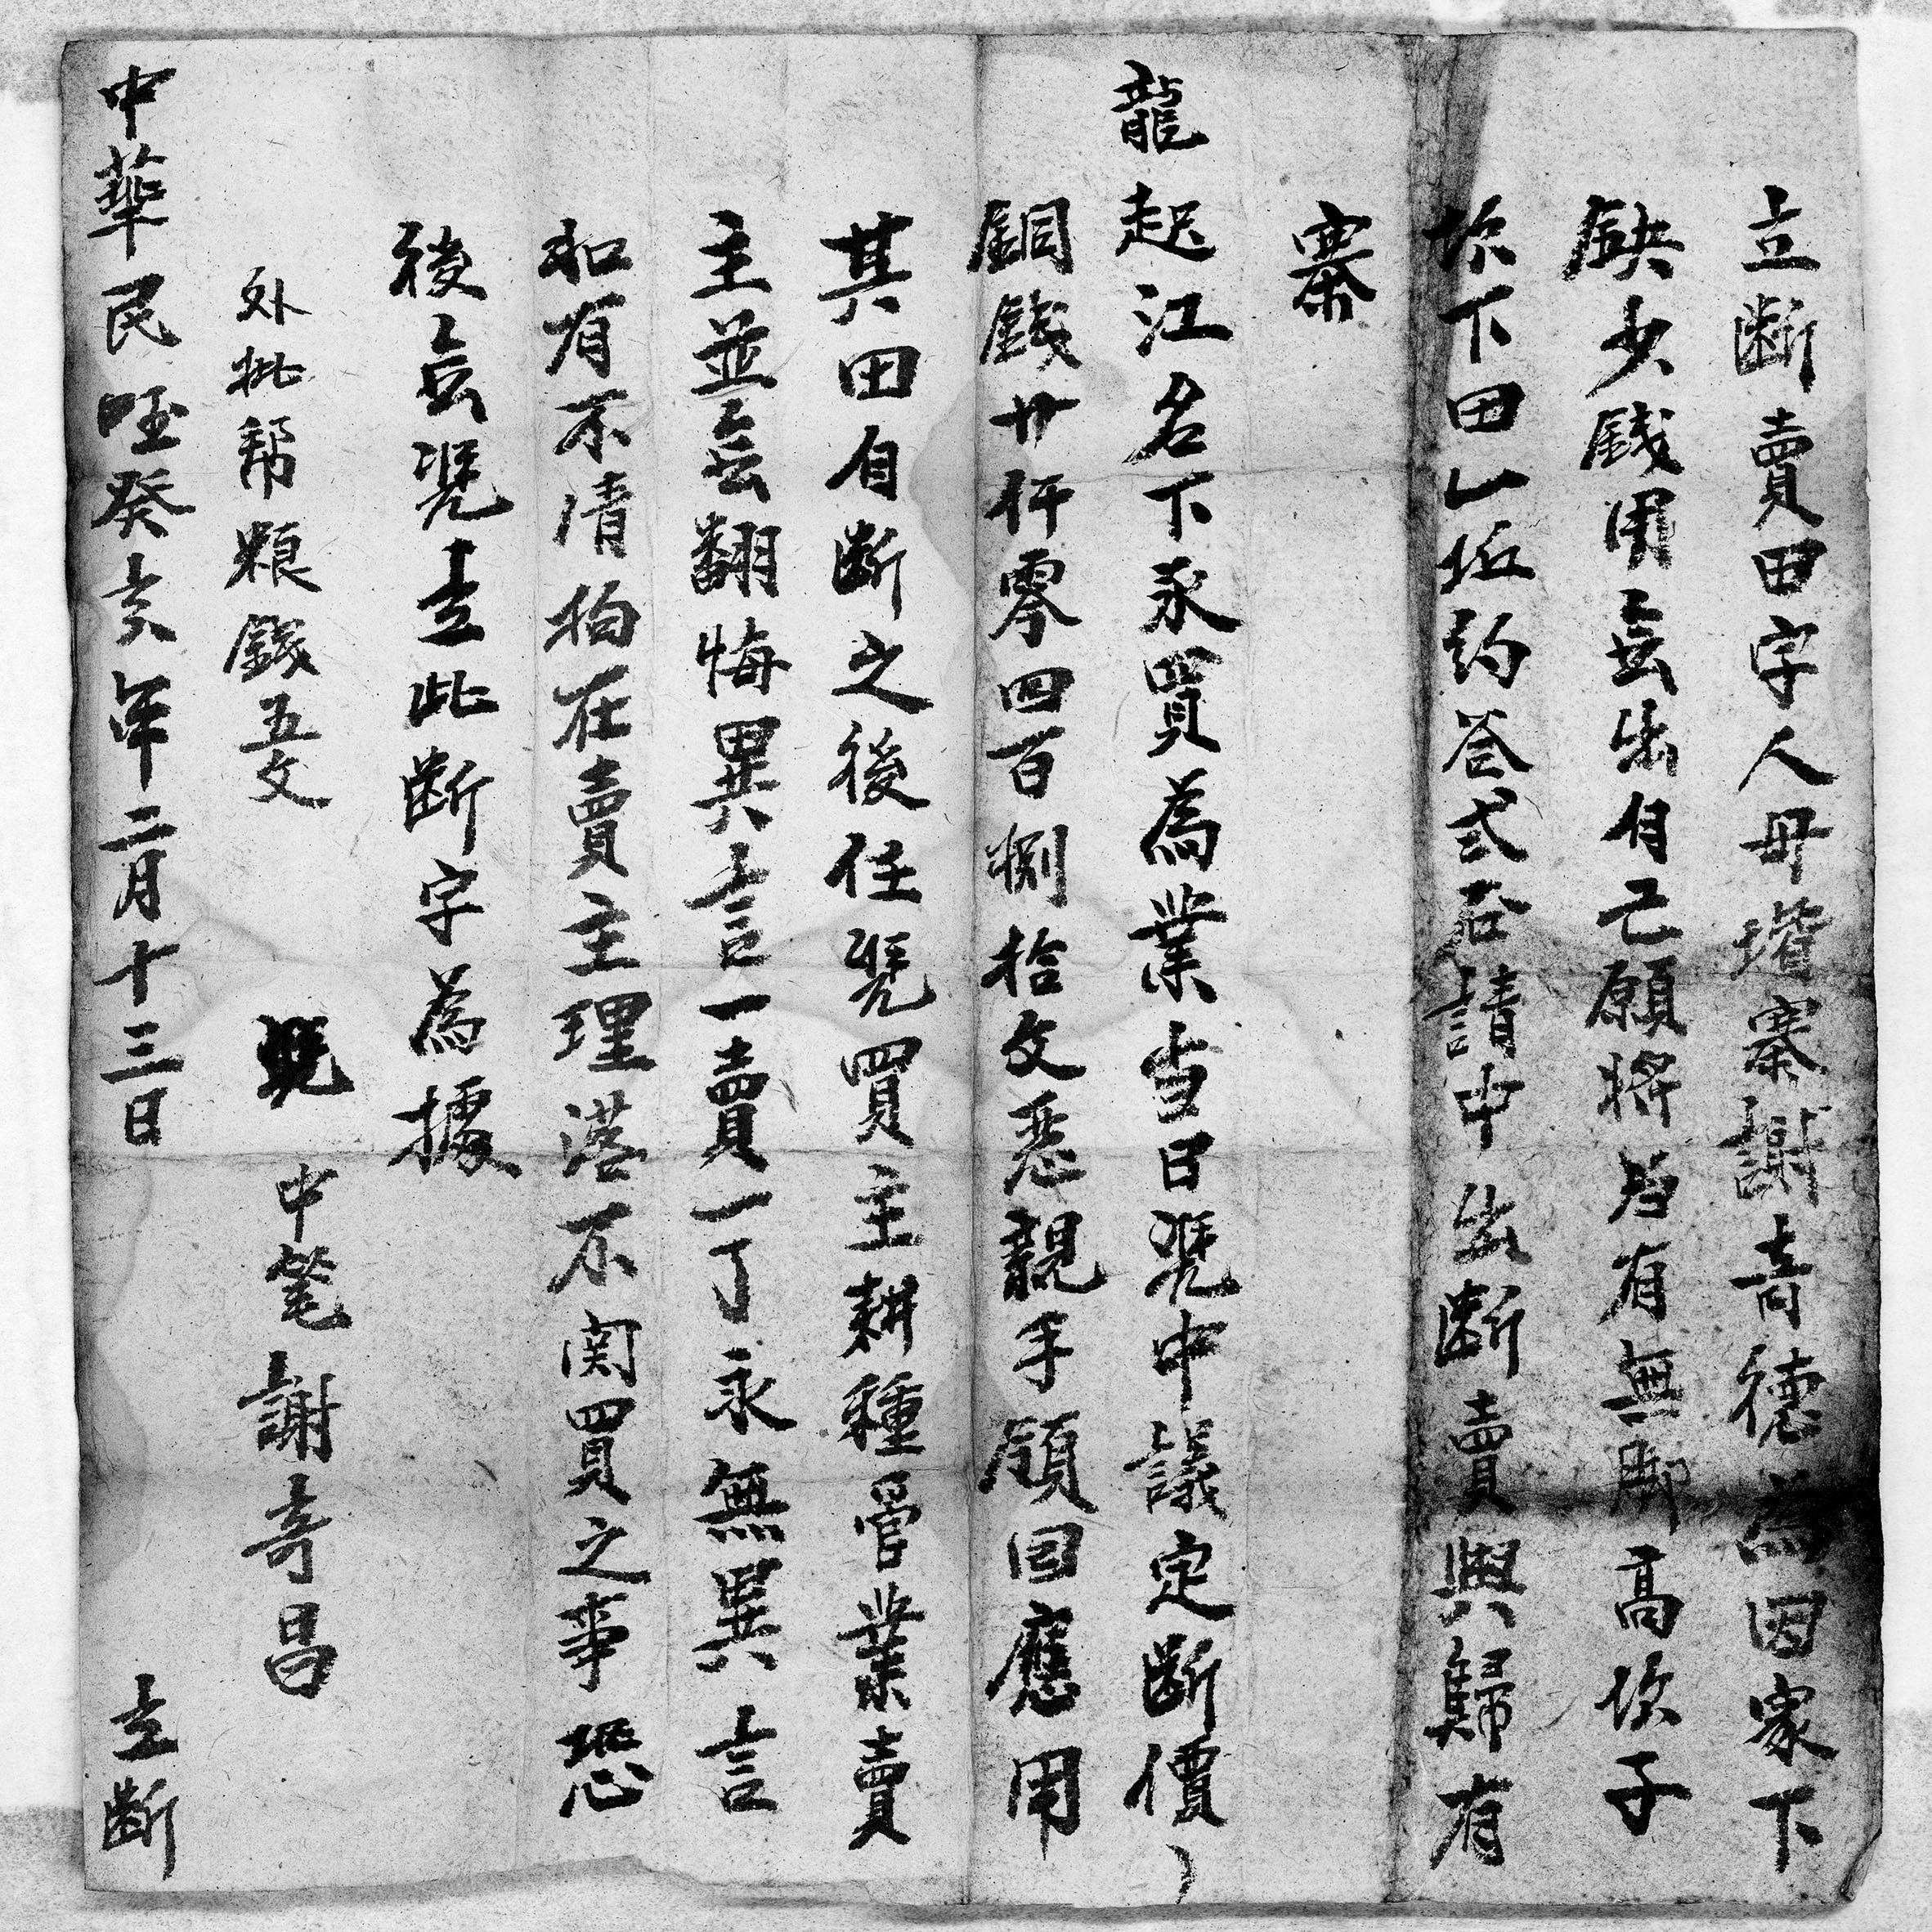 立斷賣田字人毋壻寨謝音德為因家下
缺少錢用無出自己願將為有無脚高坎子
坎下田一坵約谷弍石請中出斷賣與歸有
寨
龍起江名下永買為業当日凴中議定斷價
銅錢廿仟零四百捌拾文悉親手領回應用
其田自斷之後任凴買主耕種管業賣
主並無翻悔異言一賣一了永無異言
如有不清拘在賣主理落不関買之事恐
後無凴立此斷字為據
外批帮粮錢五文
凴 中筆謝奇昌
中華民囯癸亥年二月十三日 立斷